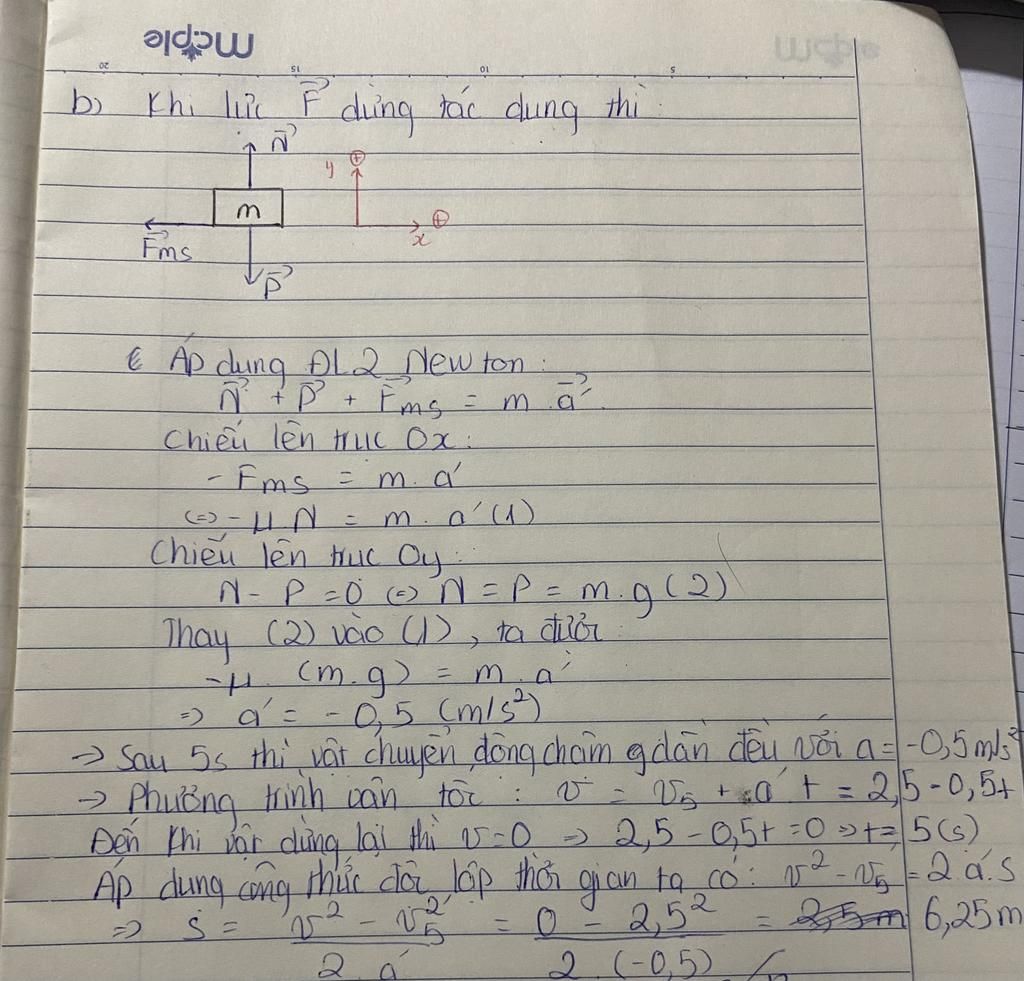 Maple
20 15 10 5
b) Khi lực F⃗ dừng tác dụng thì:
N⃗
y ⊕
m
⊕
x
F⃗ms
P⃗
Áp dụng ĐL2 Newton:
N⃗ + P⃗ + F⃗ms = m.a⃗'
Chiếu lên trục Ox:
-Fms = m.a'
<=> -μN = m.a' (1)
Chiếu lên trục Oy:
N - P = 0 <=> N = P = m.g (2)
Thay (2) vào (1), ta được:
-μ.(m.g) = m.a'
=> a' = -0,5 (m/s²)
→ Sau 5s thì vật chuyển động chậm dần đều với a = -0,5 m/s²
→ Phương trình vận tốc: v = v₅ + a't = 2,5 - 0,5t
Đến khi vật dừng lại thì v=0 => 2,5 - 0,5t = 0 => t = 5(s)
Áp dụng công thức độc lập thời gian ta có: v² - v₅ = 2a'.s
=> s = (v² - v₅²)/(2.a') = (0 - 2,5²)/(2.(-0,5)) = 6,25m